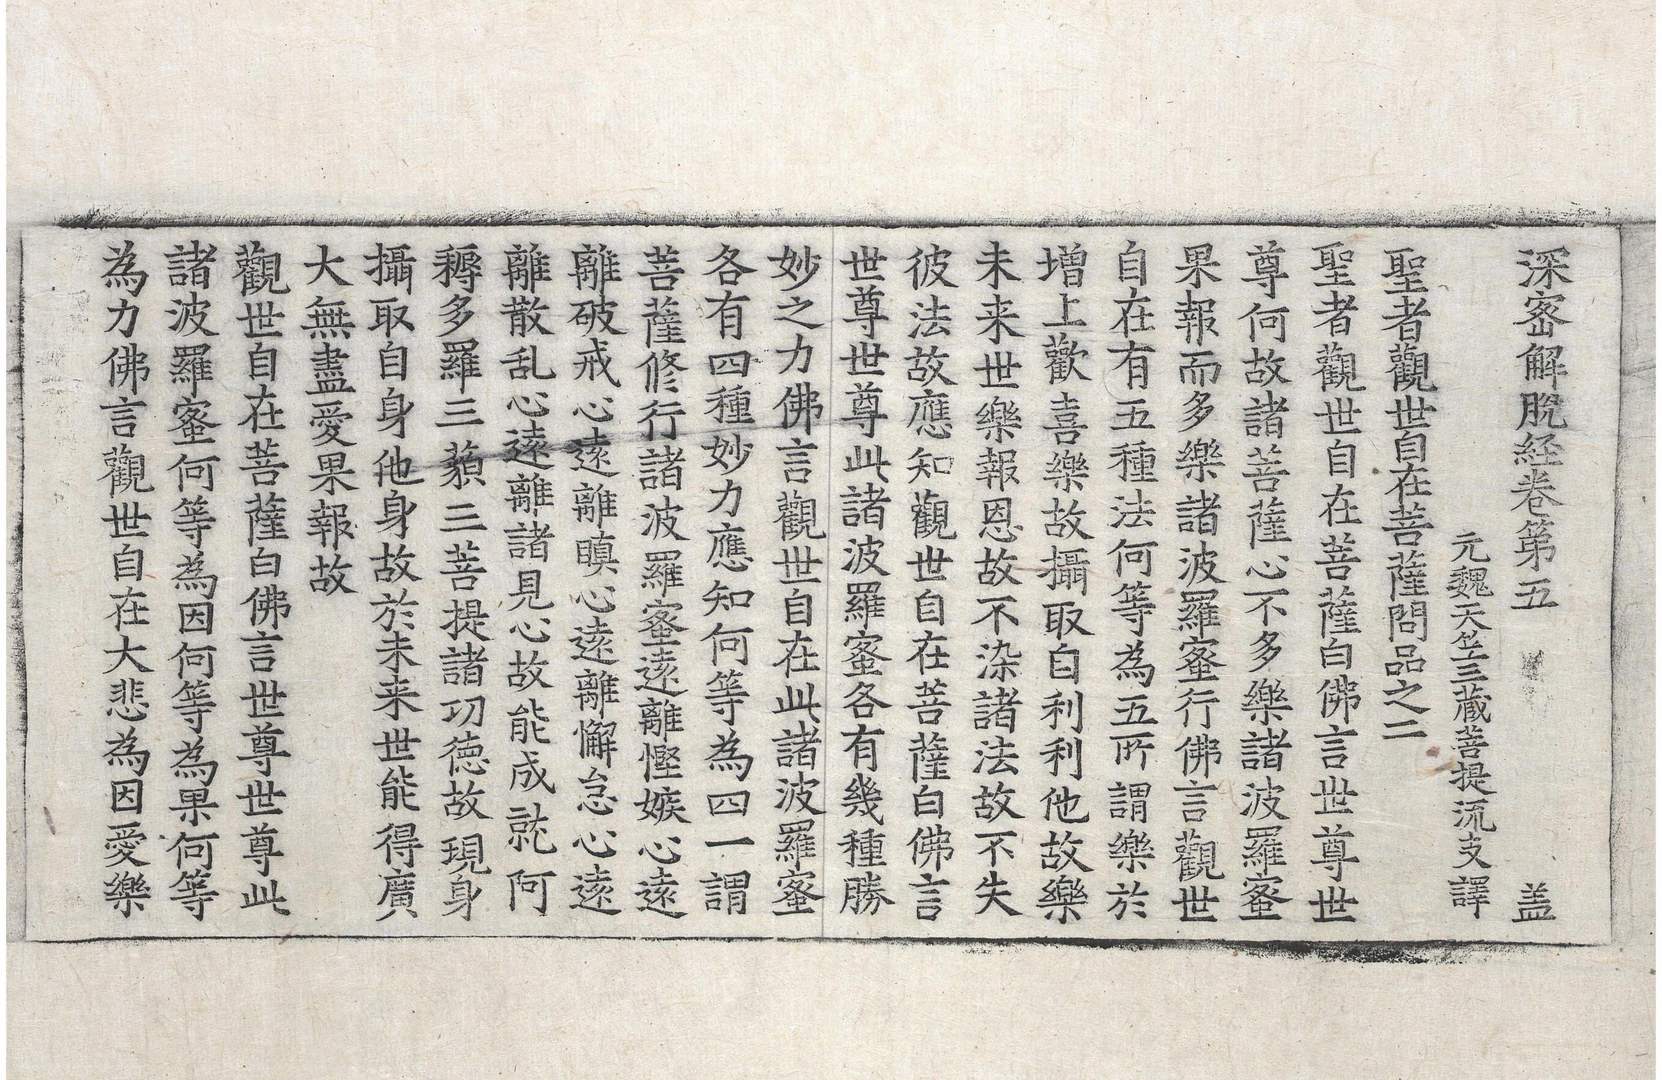 深密解脫经卷第五 盖
元魏天竺三藏菩提流支譯
聖者觀世自在菩薩問品之二
聖者觀世自在菩薩白佛言世尊世
尊何故諸菩薩心不多樂諸波羅蜜
果報而多樂諸波羅蜜行佛言觀世
自在有五種法何等為五所謂樂於
增上歡喜樂故攝取自利利他故樂
未来世樂報恩故不染諸法故不失
彼法故應知觀世自在菩薩白佛言
世尊世尊此諸波羅蜜各有幾種勝
妙之力佛言觀世自在此諸波羅蜜
各有四種妙力應知何等為四一謂
菩薩修行諸波羅蜜遠離慳嫉心遠
離破戒心遠離瞋心遠離懈怠心遠
離散乱心遠離諸見心故能成就阿
耨多羅三藐三菩提諸功德故現身
攝取自身他身故於未来世能得廣
大無盡愛果報故
觀世自在菩薩白佛言世尊世尊此
諸波羅蜜何等為因何等為果何等
為力佛言觀世自在大悲為因愛樂